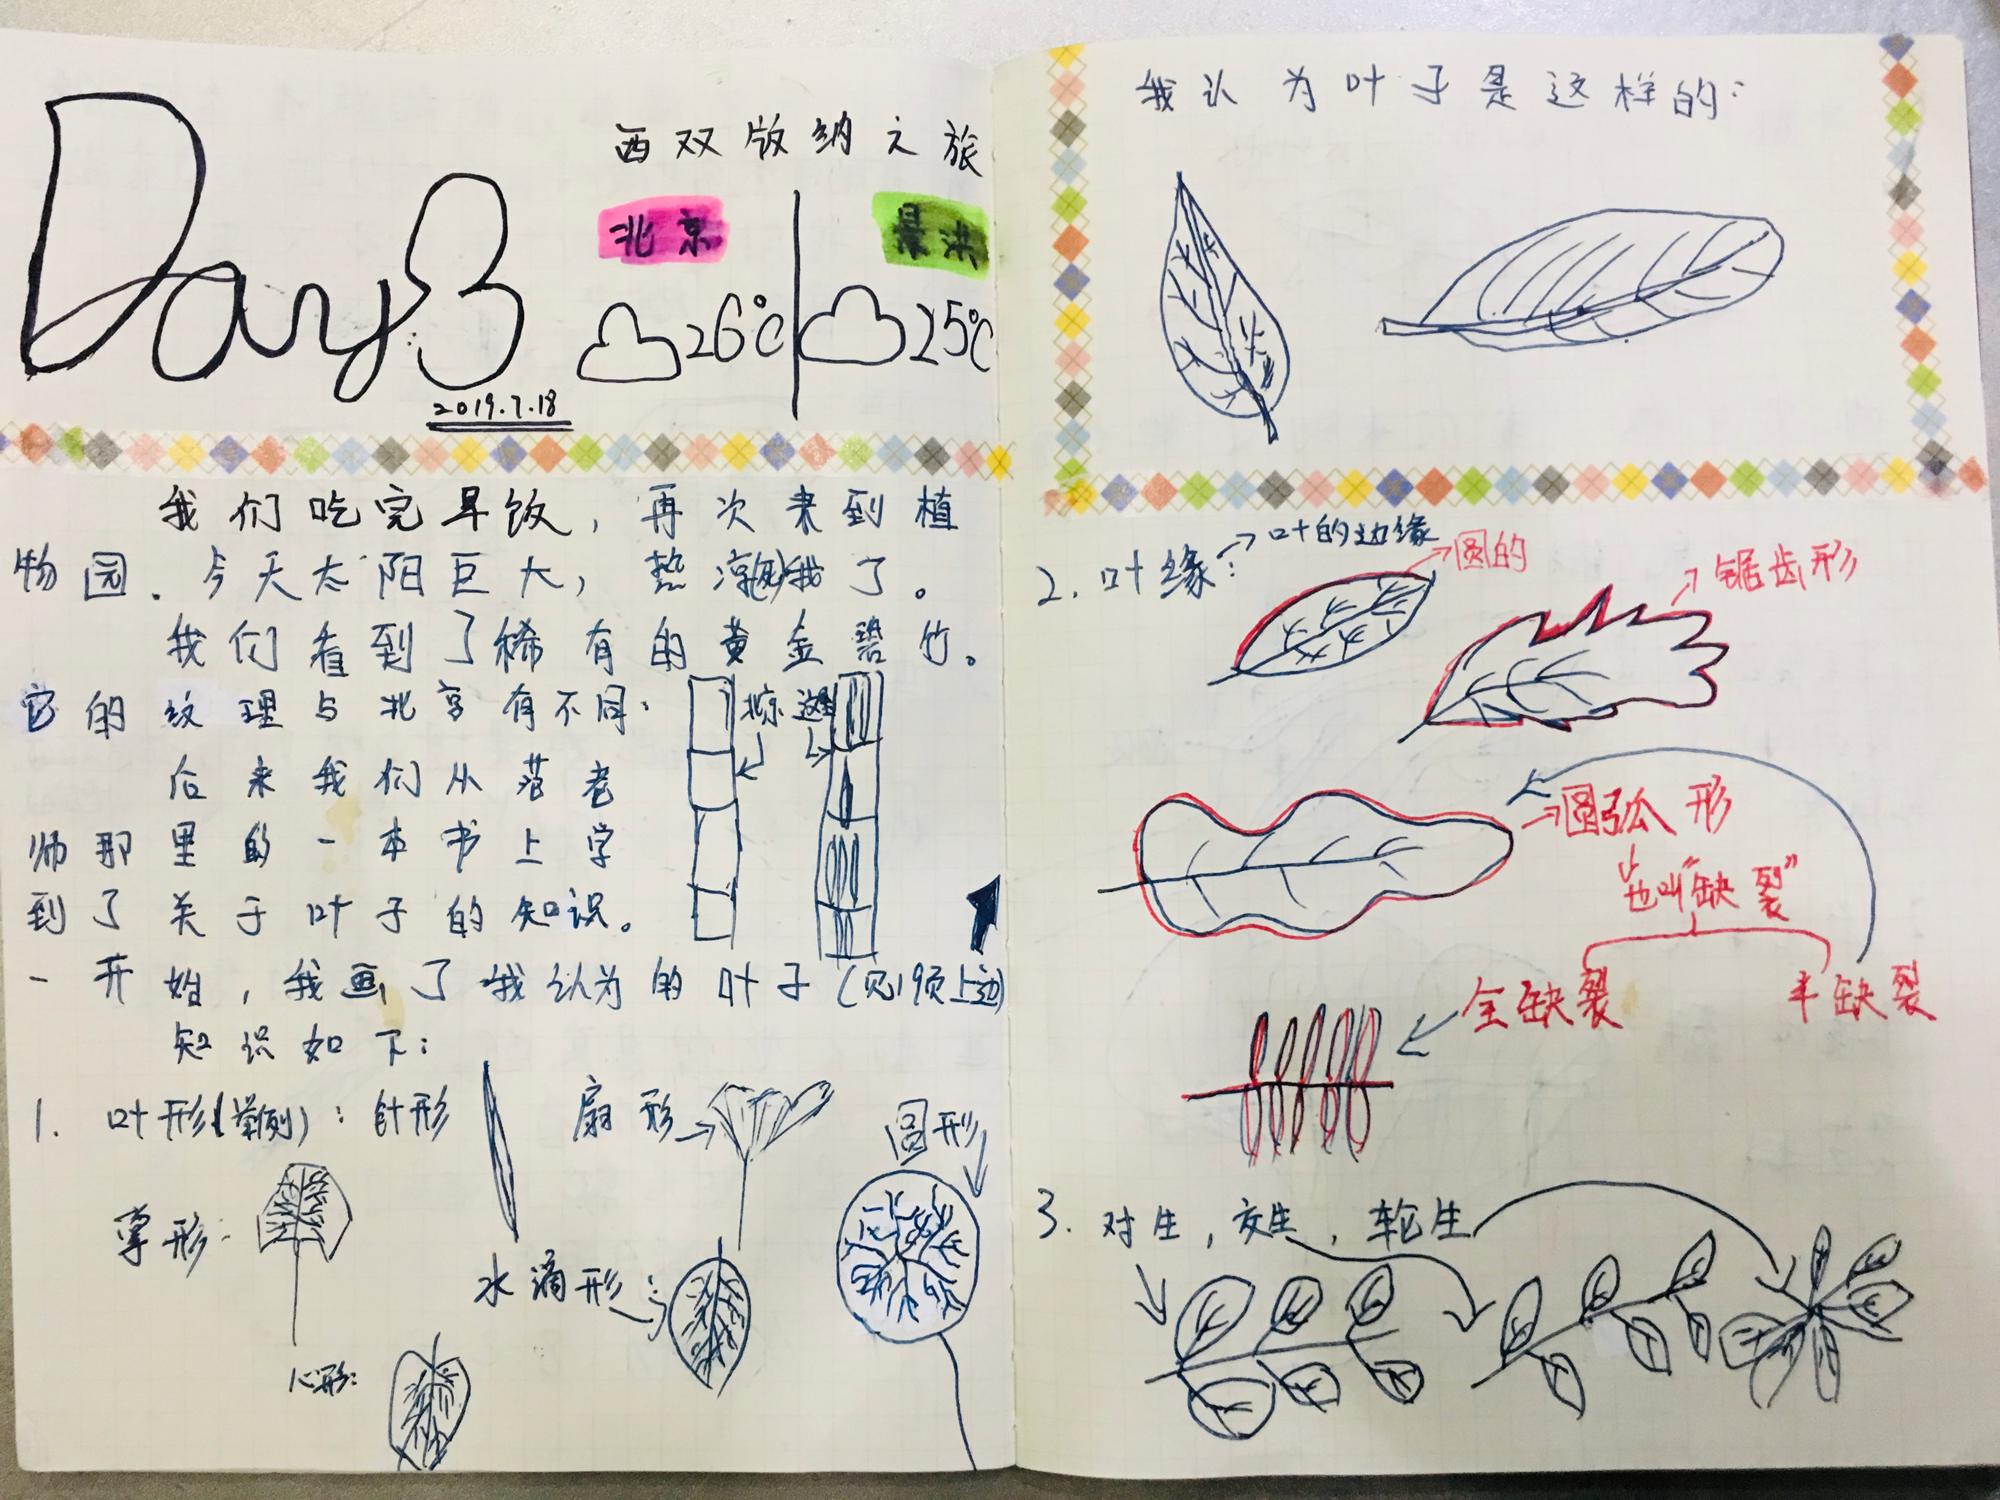 Day 3
2019.7.18
西双版纳之旅
北京 景洪
26℃ 25℃
我们吃完早饭，再次来到植
物园．今天太阳巨大，热 我了。
我们看到了稀有的黄金碧竹。
它的纹理与北京有不同：
北京 这里
后来我们从范老
师那里的一本书上学
到了关于叶子的知识。
一开始，我画了我认为的叶子(见1页上边)
知识如下：
1. 叶形(举例)：针形
扇形
圆形
掌形：
水滴形：
心形：
我认为叶子是这样的：
2. 叶缘：→叶的边缘
圆的
锯齿形
圆弧形
也叫“缺裂”
全缺裂
半缺裂
3. 对生，交生，轮生